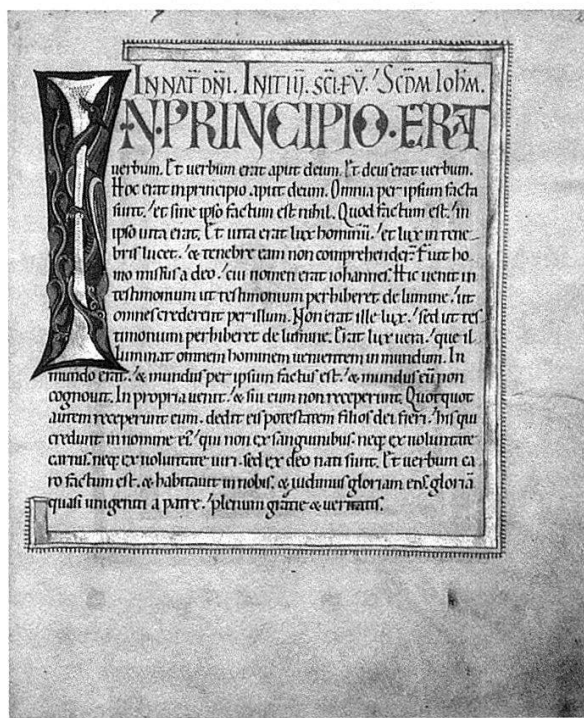 IN NAT̄ DN̄I. INITIŪ. SC̄I. EV̄. SCD̄M IOH̄M.
IN·PRINCIPIO·ERAT
uerbum. Et uerbum erat aput deum. Et deus erat uerbum.
Hoc erat in principio aput deum. Omnia per ipsum facta
sunt. et sine ipso factum est nihil. Quod factum est. in
ipso uita erat. Et uita erat lux hominū. et lux in tene-
bris lucet. & tenebre eam non comprehender̄. Fuit ho
mo missus a deo. cui nomen erat iohannes. Hic uenit in
testimonium ut testimonium perhiberet de lumine. ut
omnes crederent per illum. Non erat ille lux. sed ut tes-
timonium perhiberet de lumine. Erat lux uera. que il
luminat omnem hominem uenientem in mundum. In
mundo erat. & mundus per ipsum factus est. & mundus eū non
cognouit. In propria uenit. & sui eum non receperunt. Quotquot
autem receperunt eum. dedit eis potestatem filios dei fieri. his qui
credunt in nomine ei'. qui non ex sanguinibus. neq; ex uoluntate
carnis. neq; ex uoluntate uiri. sed ex deo nati sunt. Et uerbum ca
ro factum est. & habitauit in nobis. & uidimus gloriam eius. gloriā
quasi unigeniti a patre. plenum gratie & ueritatis.